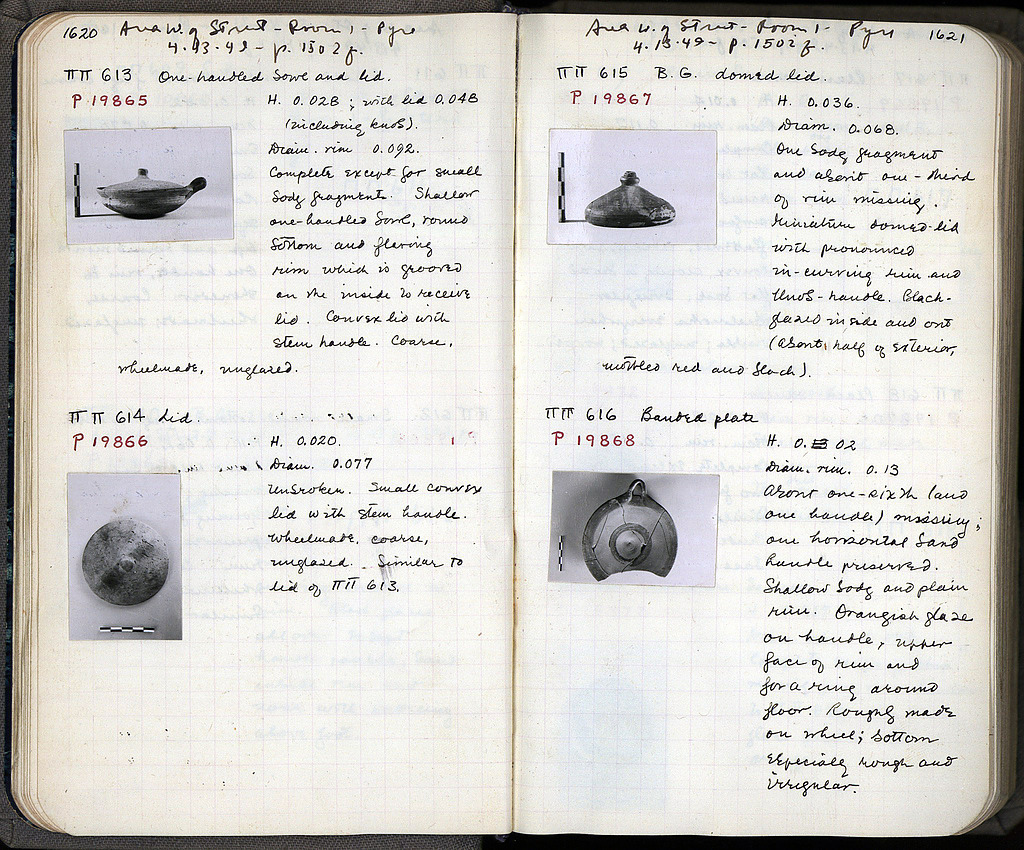 1620 Area W. of Street - Room 1 - Pyre
4.13.49 - p. 1502 f.
ΠΠ 613 One-handled bowl and lid.
P 19865 H. 0.028; with lid 0.048
(including knob).
Diam. rim 0.092.
Complete except for small
body fragment. Shallow
one-handled bowl, round
bottom and flaring
rim which is grooved
on the inside to receive
lid. Convex lid with
stem handle. Coarse,
wheelmade, unglazed.
ΠΠ 614 Lid.
P 19866 H. 0.020.
Diam. 0.077
Unbroken. Small convex
lid with stem handle.
Wheelmade, coarse,
unglazed. Similar to
lid of ΠΠ 613.
Area W. of Street - Room 1 - Pyre 1621
4.13.49 - p. 1502 f.
ΠΠ 615 B.G. domed lid.
P 19867 H. 0.036.
Diam. 0.068.
One body fragment
and about one-third
of rim missing.
Miniature domed lid
with pronounced
in-curving rim and
knob-handle. Black-
glazed inside and out
(about half of exterior,
mottled red and black).
ΠΠ 616 Banded plate
P 19868 H. 0.02
Diam. rim. 0.13
About one-sixth (and
one handle) missing;
one horizontal band
handle preserved.
Shallow body and plain
rim. Orangish glaze
on handle, upper
face of rim and
for a ring around
floor. Roughly made
on wheel; bottom
especially rough and
irregular.